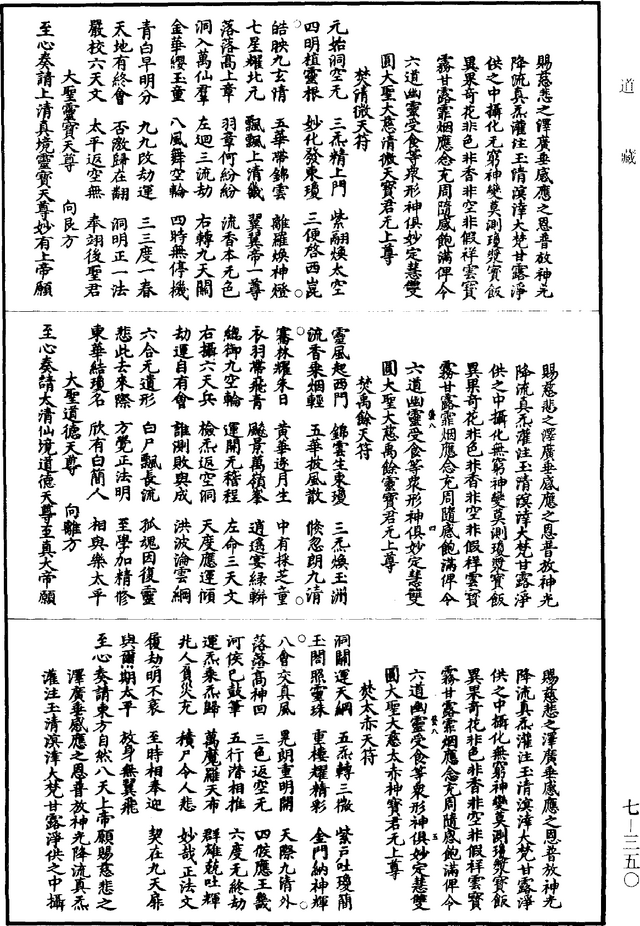 道藏
賜慈悲之澤廣垂感應之恩普放神光
降流真炁灌注玉清溟涬大梵甘露淨
供之中攝化无窮神變莫測瓊漿寶飯
異果奇花非色非香非空非假祥雲寶
霧甘露霏烟應念充周隨感飽滿俾今
六道幽靈受食等衆形神俱妙定慧雙
圓大聖大慈清微天寶君元上尊
焚清微天符
元始洞空元　三炁精上門　紫翮煥太空
四明植靈根　妙化發東瓊　三便啓西崑
皓映九玄清　五華帶錦雲　離羅煥神燈
七星耀北元　飄飄上清畿　翼翼帝一尊
落落高上章　羽章何紛紛　流香本元色
洞入萬仙羣　左迴三流劫　右轉九天關
金華纓玉童　八風舞空輪　四時無停機
青白早明分　九九改劫運　三三度一春
天地有終會　否激歸在翻　洞明正一法
嚴校六天文　太平返空無　奉翊後聖君
大聖靈寶天尊　向艮方
至心奏請上清真境靈寶天尊妙有上帝願
賜慈悲之澤廣垂感應之恩普放神光
降流真炁灌注玉清溟涬大梵甘露淨
供之中攝化無窮神變莫測瓊漿寶飯
異果奇花非色非香非空非假祥雲寶
霧甘露霏烟應念充周隨感飽滿俾今
六道幽靈受食等衆形神俱妙定慧雙
圓大聖大慈禹餘靈寶君元上尊
焚禹餘天符
靈風起西門　錦雲生東瓊　三炁煥玉洲
流香乘烟輕　五華披風散　倏忽朗九清
騫林耀朱日　黄華逐月生　中有採芝童
衣羽帶飛青　飈景萬領峯　逍遥宴緑軿
總御九空輪　運開元稽程　左命三天文
右攝六天兵　檢炁返空洞　天度應運傾
劫運自有會　誰測敗與成　洪波淪雲綱
六合元遺形　白尸飄長流　孤魂因復靈
悲此去來際　方覺正法明　至學加精修
東華結瓊名　欣有白簡人　相與樂太平
大聖道德天尊　向離方
至心奏請大清仙境道德天尊至真大帝願
賜慈悲之澤廣垂感應之恩普放神光
降流真炁灌注玉清溟涬大梵甘露淨
供之中攝化無窮神變莫測瓊漿寶飯
異果奇花非色非香非空非假祥雲寶
霧甘露霏烟應念充周隨感飽滿俾今
六道幽靈受食等衆形神俱妙定慧雙
圓大聖大慈太赤神寶君元上尊
焚太赤天符
洞開運天綱　五炁轉三微　紫戶吐瓊簡
玉閤照靈珠　重樓耀精彩　金門納神輝
八會交真風　晃朗重明開　天際九清外
落落高神回　三色返空元　四候應王畿
河侯已鼓筆　五行潛相推　六度元終劫
運炁乘元歸　萬魔羅天布　群雄競吐輝
兆人負災充　積尸令人悲　妙哉正法文
復劫明不衰　至時相奉迎　契在九天扉
與爾期太平　放身無翼飛
至心奏請東方自然八天上帝願賜慈悲之
澤廣垂感應之恩普放神光降流真炁
灌注玉清溟涬大梵甘露淨供之中攝
七—三五〇